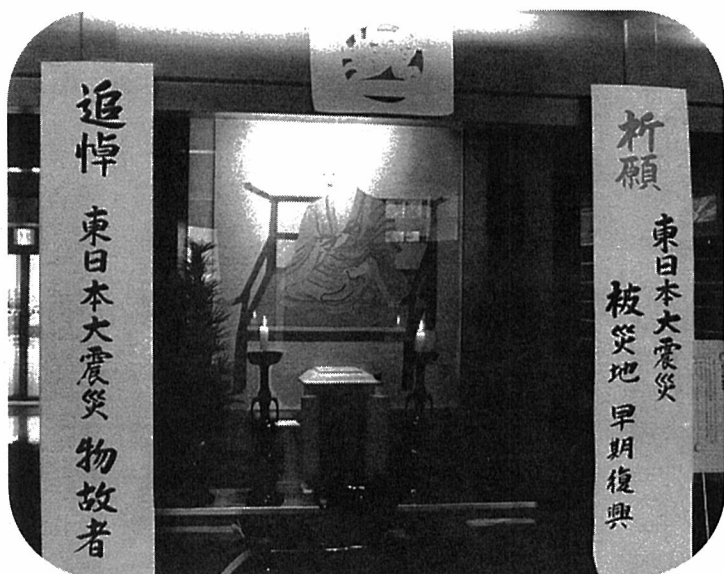 祈願
東日本大震災
被災地 早期復興
追悼 東日本大震災 物故者